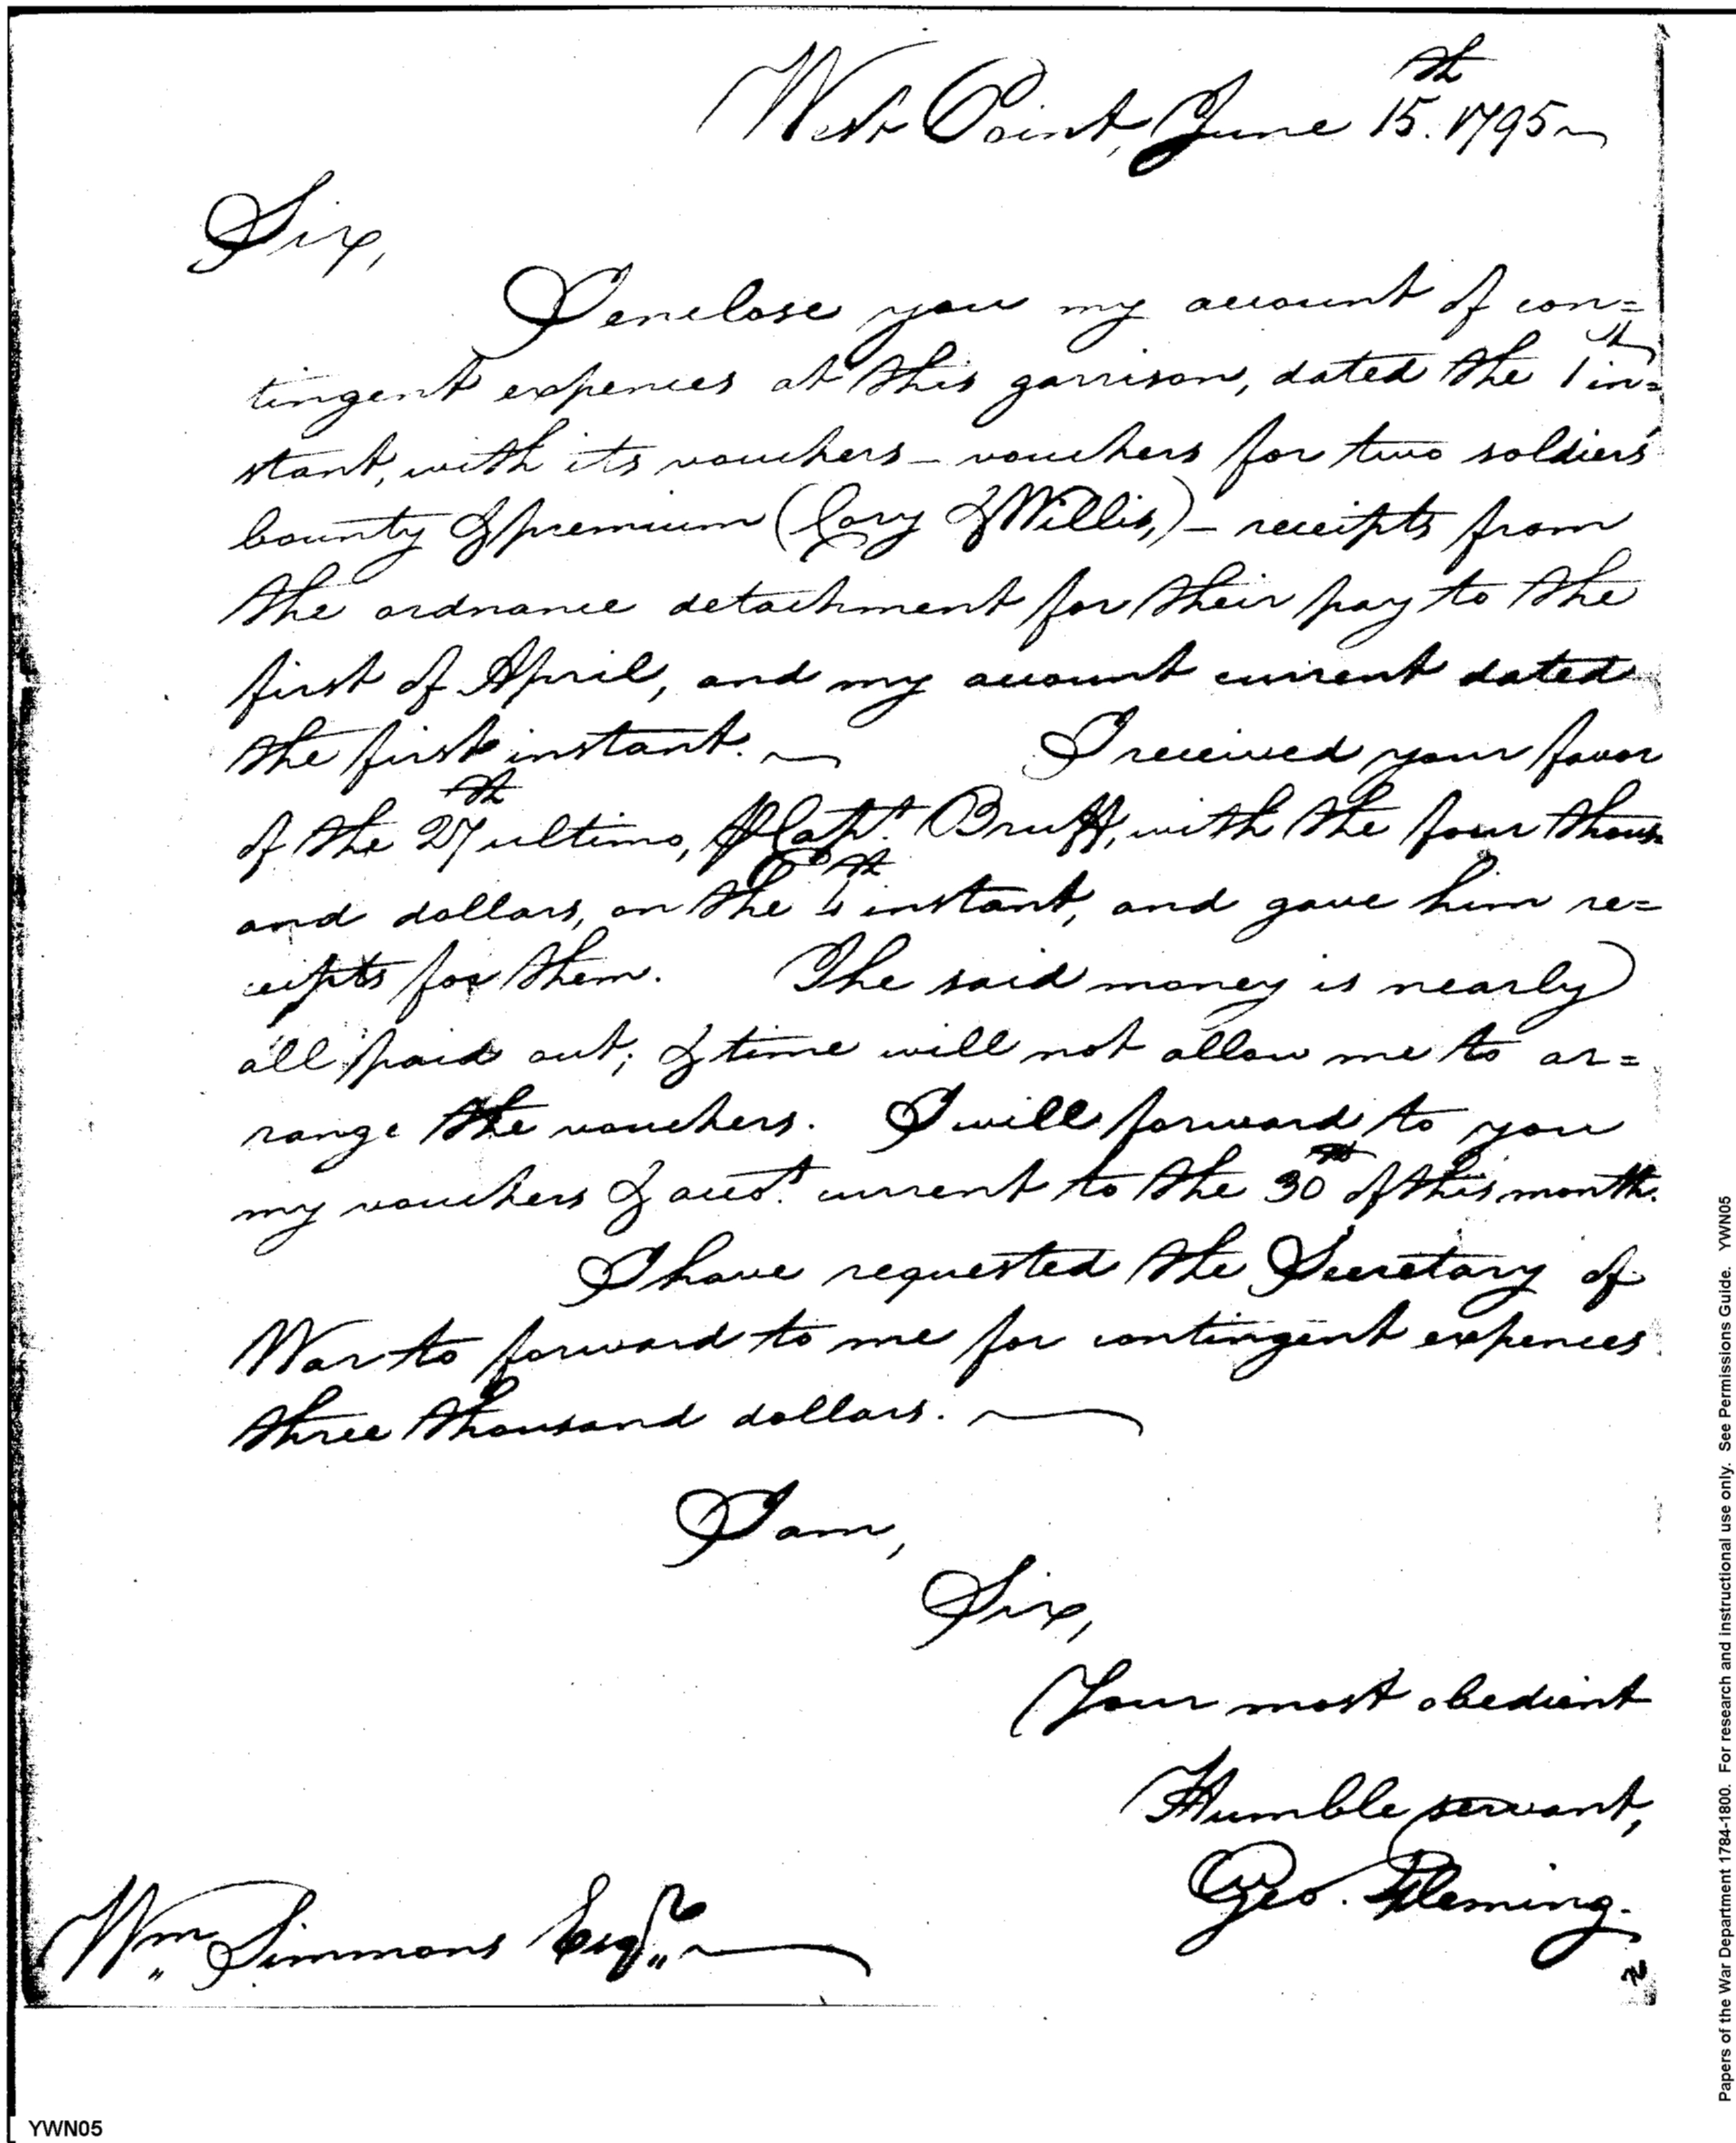 West Point, June 15th. 1795
Sir,
I enclose you my account of con=
tingent expences at this garrison, dated the 1st in=
stant, with its vouchers – vouchers for two soldiers'
bounty & premium (Cory & Willis,) – receipts from
the ordnance detachment for their pay to the
first of April, and my account current dated
the first instant. I received your favor
of the 27th ultimo, Capt. Bruff, with the four thous-
and dollars, on the instant, and gave him re=
ceipts for them. The said money is nearly
all paid out; & time will not allow me to ar=
range the vouchers. I will forward to you
my vouchers & acct. current to the 30th of this month.
I have requested the Secretary of
War to forward to me for contingent expences
three thousand dollars.
I am,
Sir,
Your most obedient
Humble servant,
Geo. Fleming.
Wm Simmons Esqr
YWN05
Papers of the War Department 1784-1800. For research and instructional use only. See Permissions Guide. YWN05